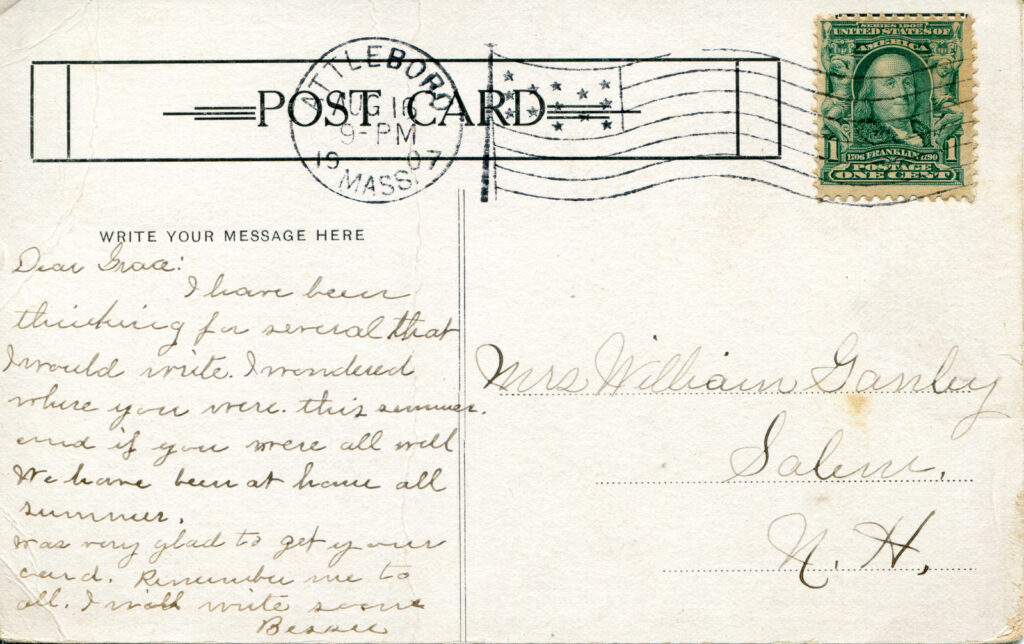 ATTLEBORO
AUG 16
9-PM
1907
MASS.
POST CARD
SERIES 1902
UNITED STATES OF
AMERICA
1 1
1706 FRANKLIN 1790
POSTAGE
ONE CENT
WRITE YOUR MESSAGE HERE
Dear Grace:
I have been
thinking for several that
I would write. I wondered
where you were. this summer.
and if you were all well
We have been at home all
summer.
was very glad to get your
card. Remember me to
all. I will write soon
Bessie
Mrs William Ganley
Salem,
N. H,